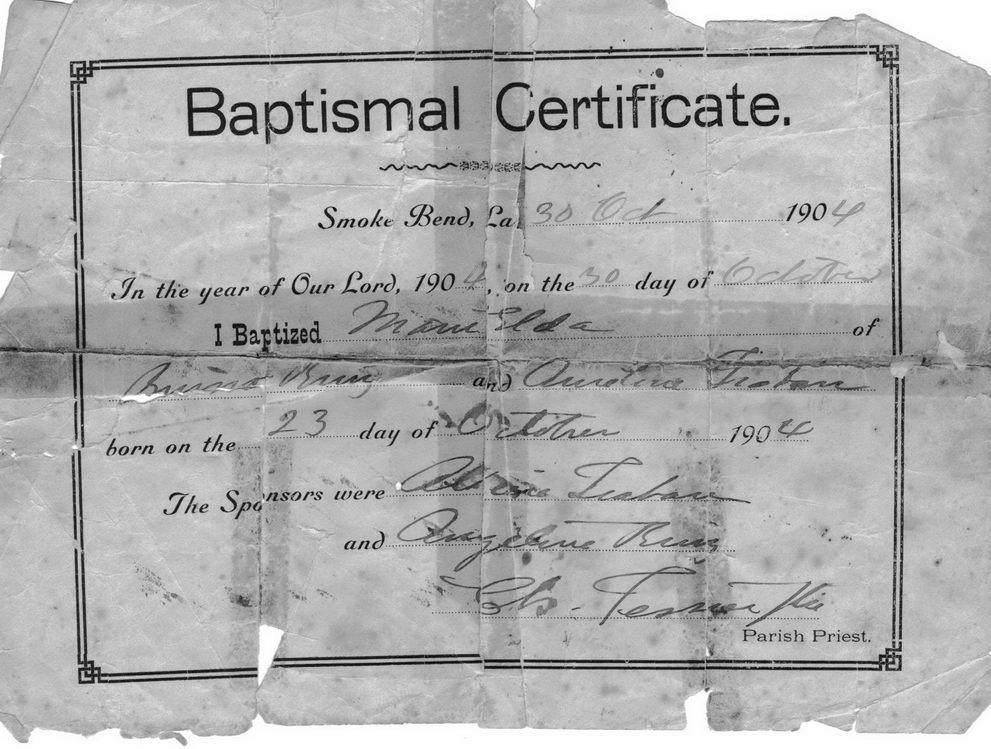 Baptismal Certificate.
Smoke Bend, La 30 Oct 1904
In the year of Our Lord, 1904, on the 30 day of October
I Baptized Marie Elda of
and
born on the 23 day of October 1904
The Sponsors were
and Angeline
Parish Priest.